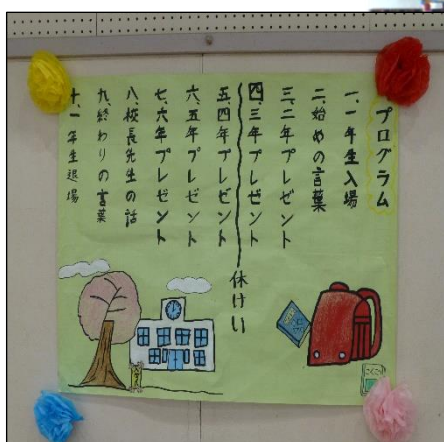 プログラム
一、一年生入場
二、始めの言葉
三、二年プレゼント
四、三年プレゼント
休けい
五、四年プレゼント
六、五年プレゼント
七、六年プレゼント
八、校長先生の話
九、終わりの言葉
十、一年生退場